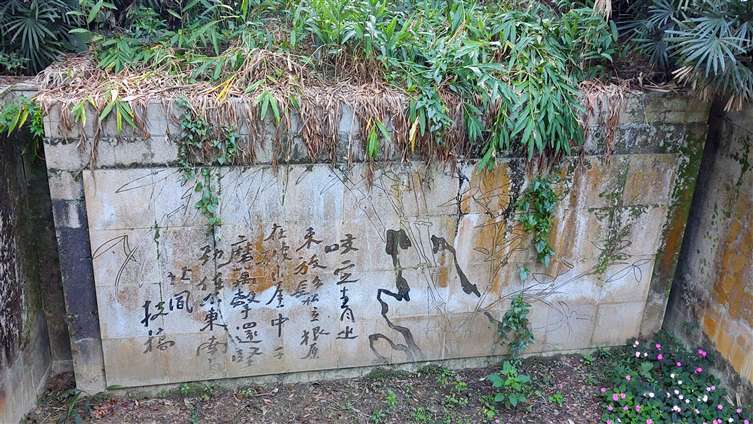 咬定青山
不放鬆立根原
在破岩中千
磨萬擊還堅
勁任尔東南
北風
板橋